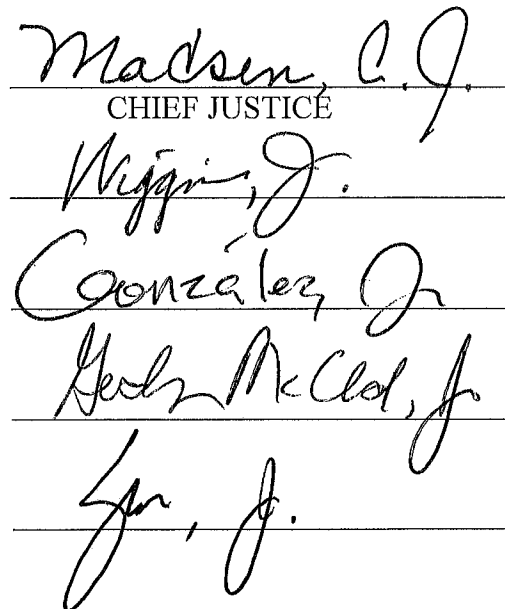 Madsen, C.J.
CHIEF JUSTICE
Wiggins, J.
González, J.
McCloud, J.
J.